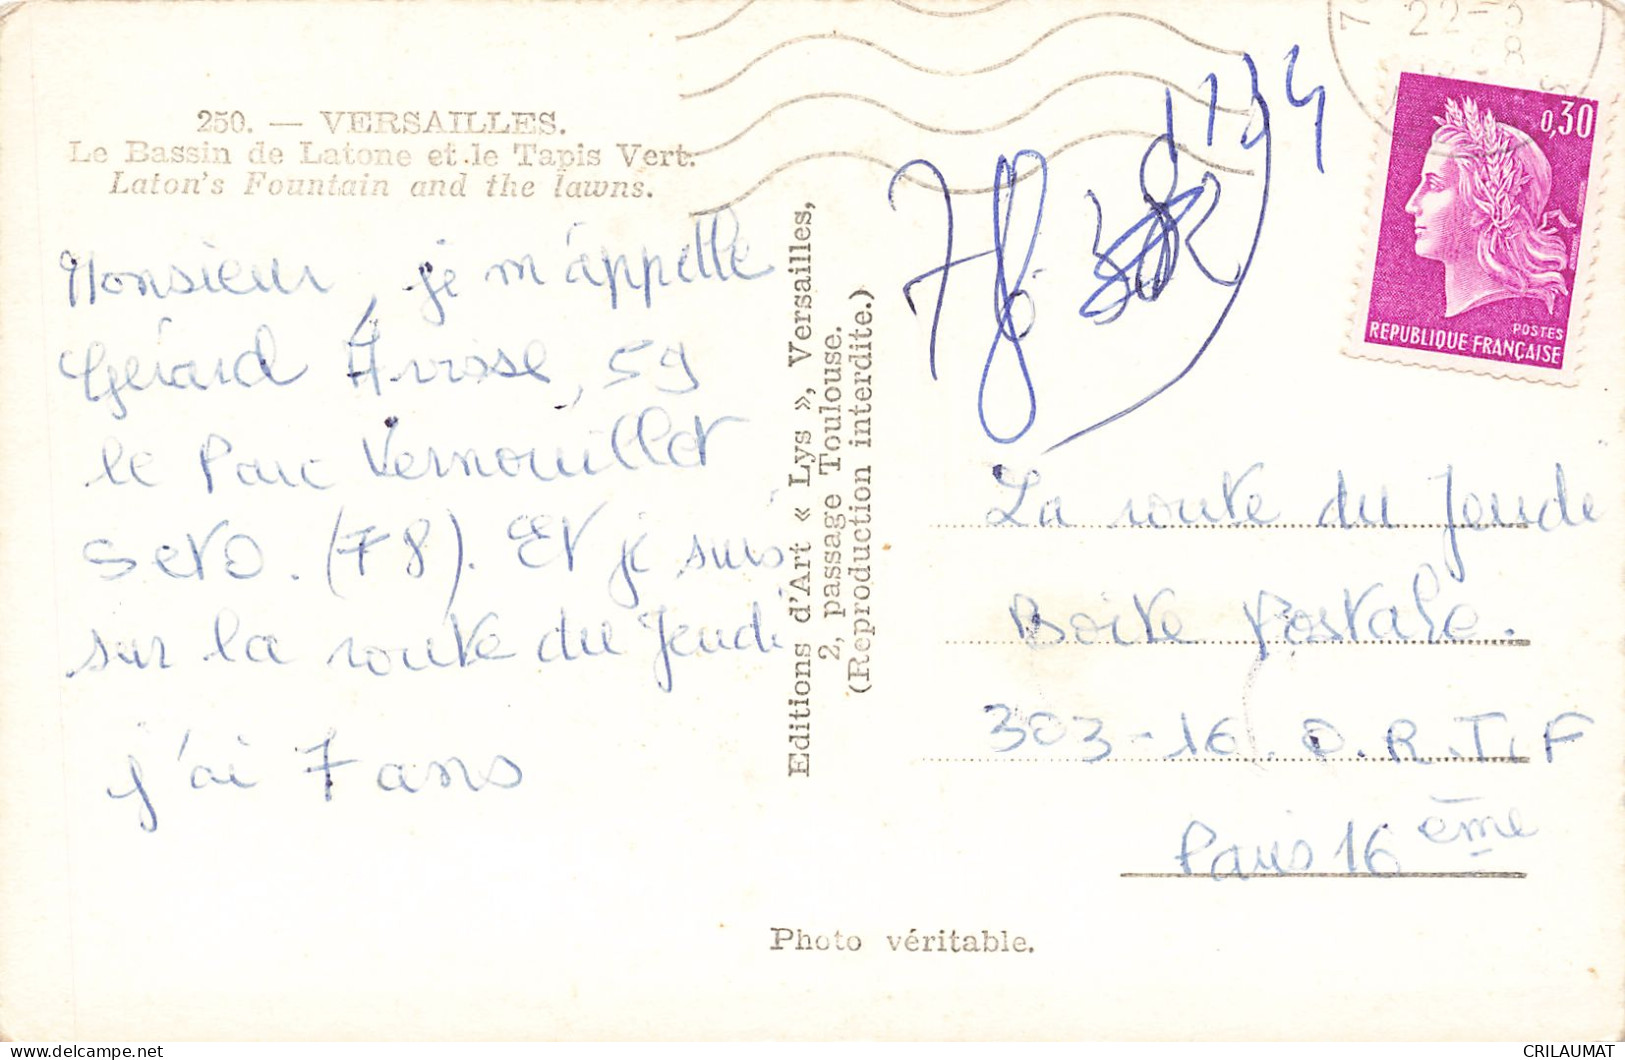 250. — VERSAILLES.
Le Bassin de Latone et le Tapis Vert.
Laton's Fountain and the lawns.
Monsieur, je m'appelle
Gérard 59
le Parc Vernouillet
(78). Et je suis
sur la route du Jeudi
j'ai 7 ans
Editions d'Art « Lys », Versailles,
2, passage Toulouse.
(Reproduction interdite.)
78
22-3
0,30
POSTES
REPUBLIQUE FRANÇAISE
La route du Jeudi
Boite Postale.
303-16. O.R.T.F
Paris 16 ème
Photo véritable.
CRILAUMAT